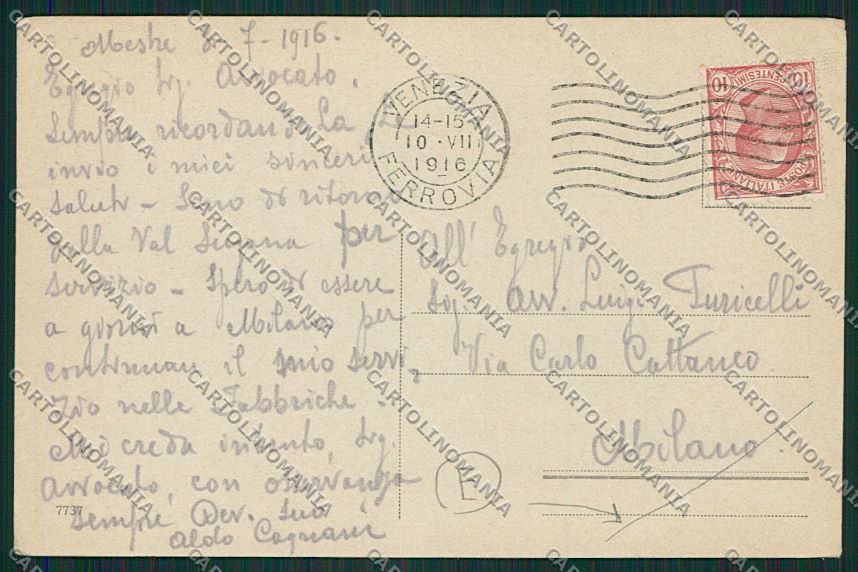 Mestre 8-7-1916.
Egregio Sig. Avvocato.
Sempre ricordando La
invio i miei sinceri
saluti - Sono di ritorno
dalla Val Sugana per
servizio - Spero di essere
a giorni a Milano per
continuare il mio servi-
zio nelle Fabbriche -
Mi creda intanto, Sig.
Avvocato, con osservanza
sempre Dev. Suo
Aldo
7737
VENEZIA
14-15
10 · VII
1916
FERROVIA
POSTE ITALIANE
CENTESIMI
10 10
All' Egregio
Sig. Avv. Luigi Turicelli
Via Carlo Cattaneo
Milano
E
CARTOLINOMANIA